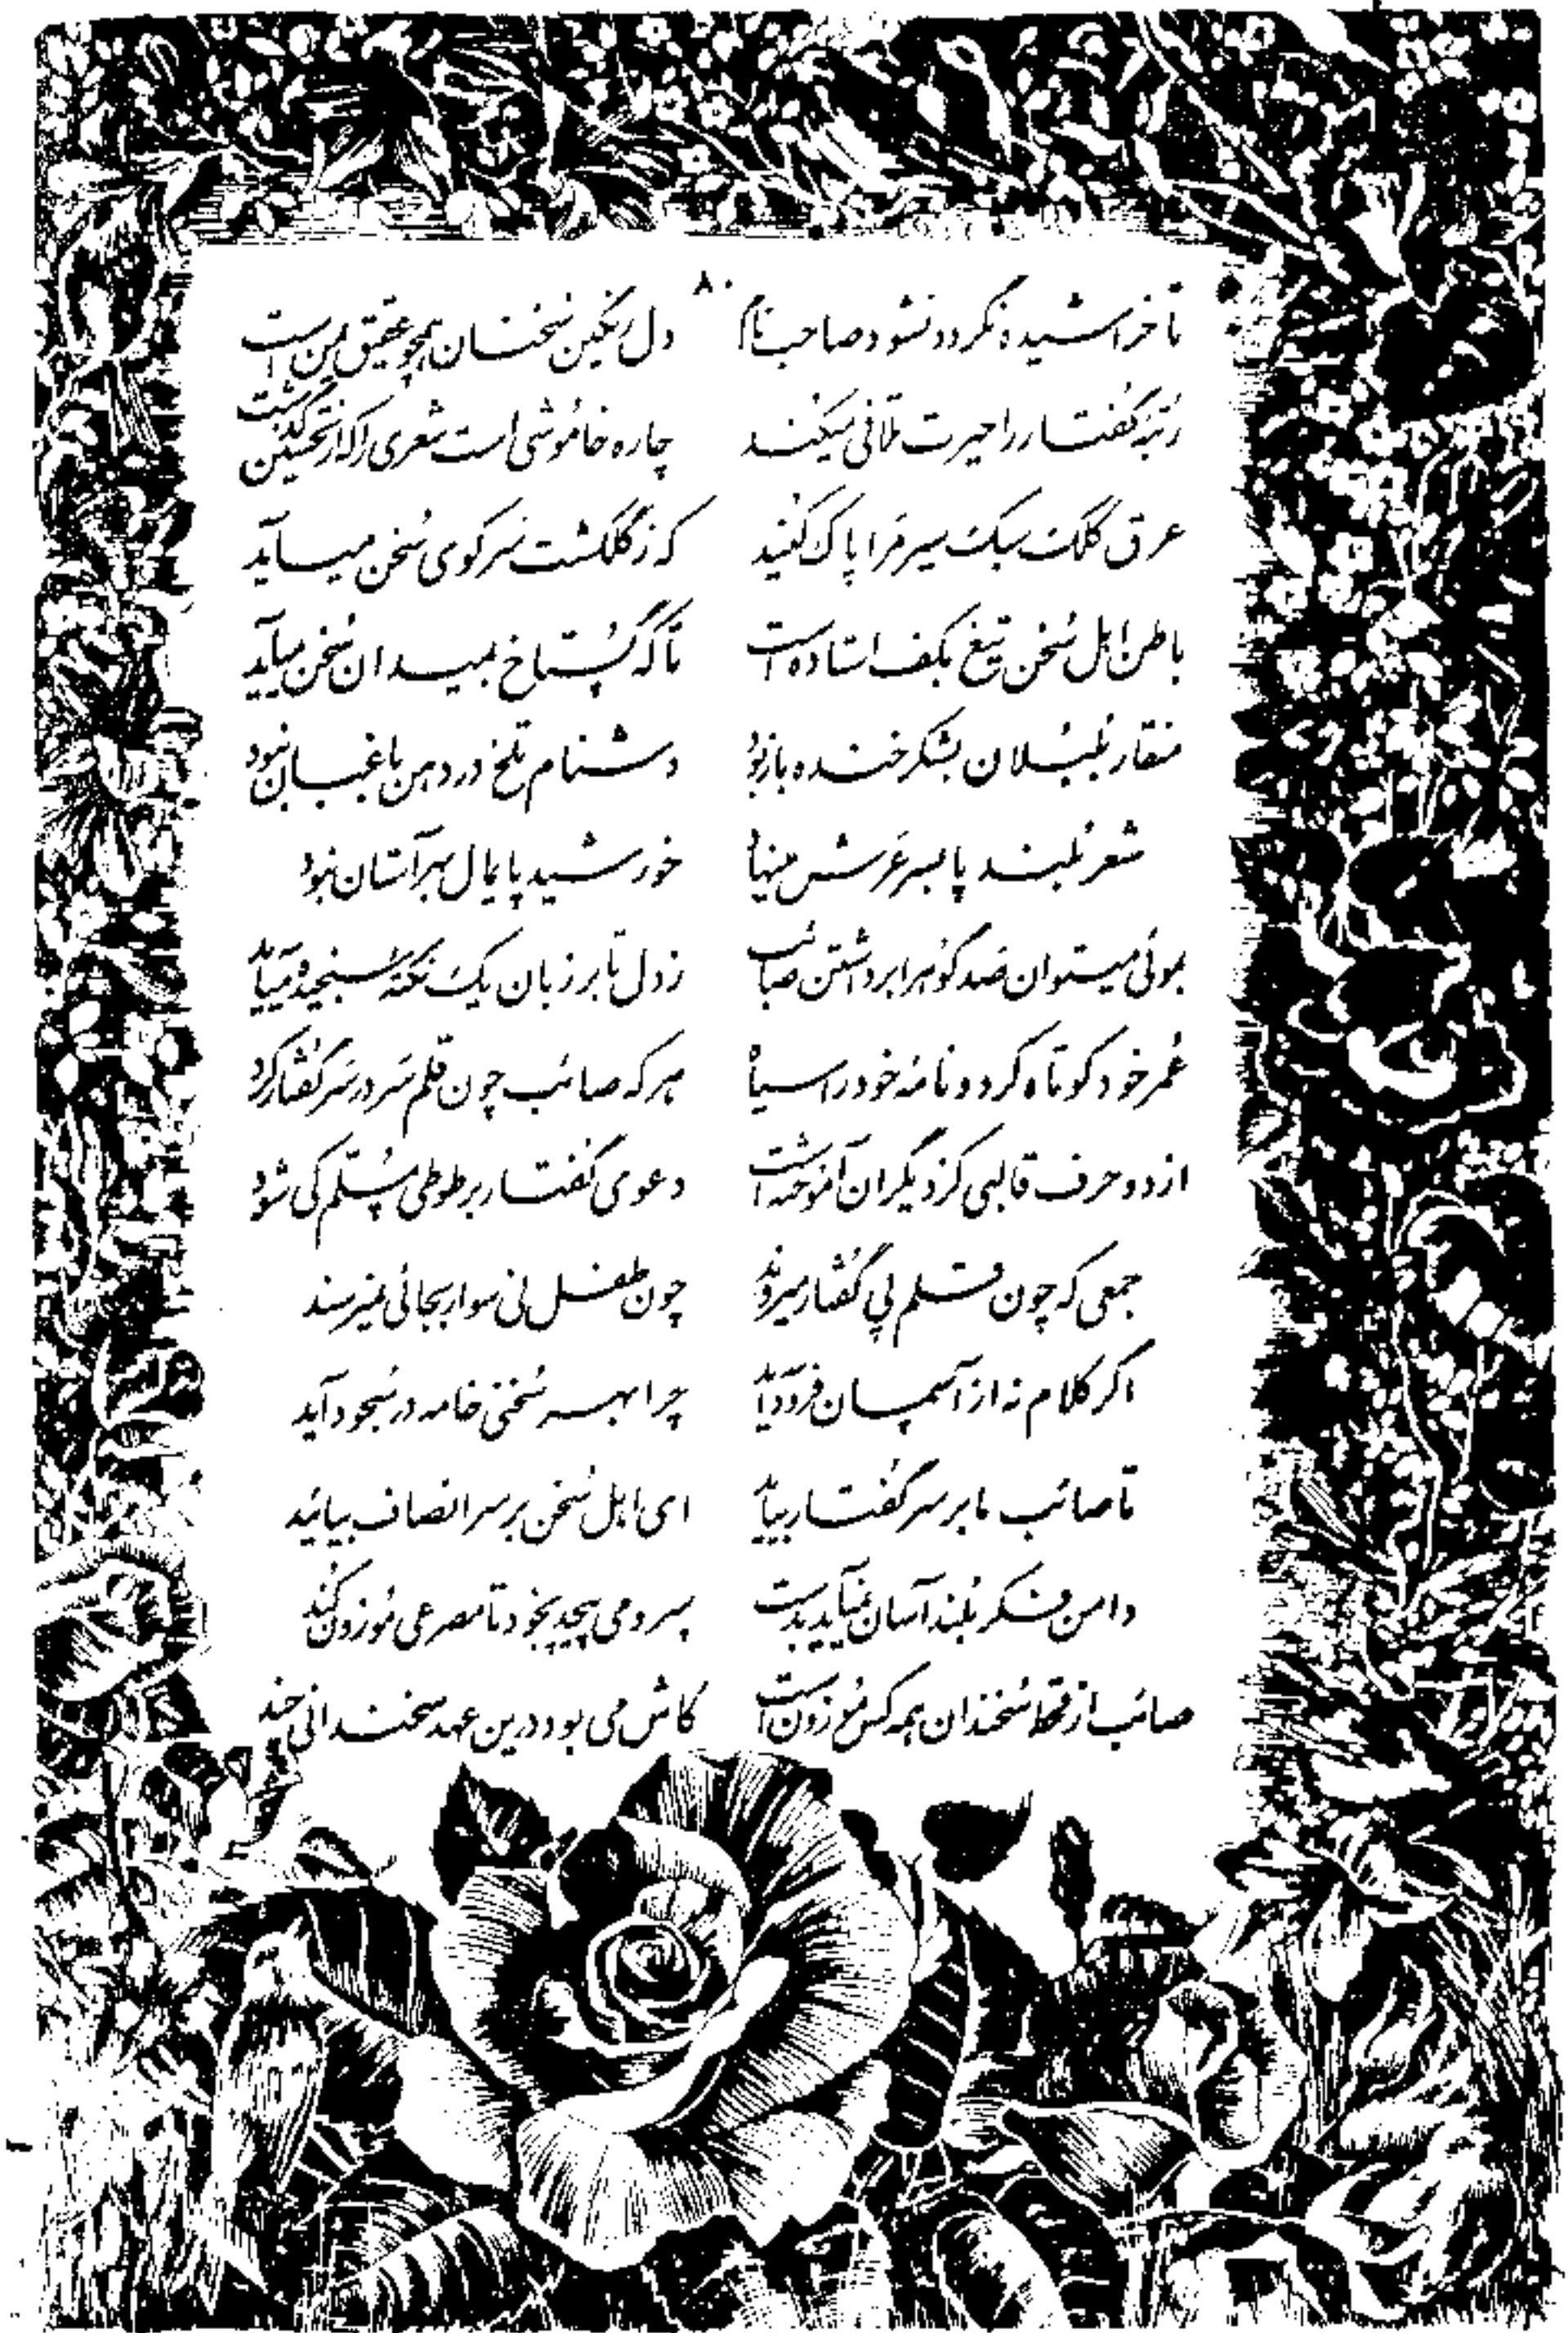 ۸۰
تا خراشیده نگردد نشود صاحب نام دل رنگین سخنان همچو عقیق یمن است
رتبه گفتار را حیرت تلافی میکند چاره خاموشی است شعری را که از تحسین گذشت
عرق کلک سبک سیر مرا پاک کنید که ز گلگشت سر کوی سخن میآید
باطن اهل سخن تیغ بکف استاده است تا که گستاخ بمیدان سخن میآید
منقار بلبلان بشکر خنده باز بود دشنام تلخ در دهن باغبان نبود
شعر بلند پا بسر عرش مینهاد خورشید پایمال هر آستان نبود
بموئی میتوان صد کوه را برداشتن صائب ز دل تا بر زبان یک نکته سنجیده میآید
عمر خود کوتاه کرد و نامه خود را سیاه هر که صائب چون قلم سر در سر گفتار کرد
از دو حرف قالبی کز دیگران آموخته است دعوی گفتار بر طوطی مسلم کی شود
جمعی که چون قلم پی گفتار میروند چون طفل نی سوار بجائی نمیرسند
اگر کلام نه از آسمان فرود آید چرا بهر سخنی خامه در سجود آید
تا صائب ما بر سر گفتار بیاید ای اهل سخن بر سر انصاف بیائید
دامن فکر بلند آسان نمیآید بدست سرو می پیچد بخود تا مصرعی موزون کند
صائب از قحط سخندان همه کس موزون است کاش می بود درین عهد سخندانی چند